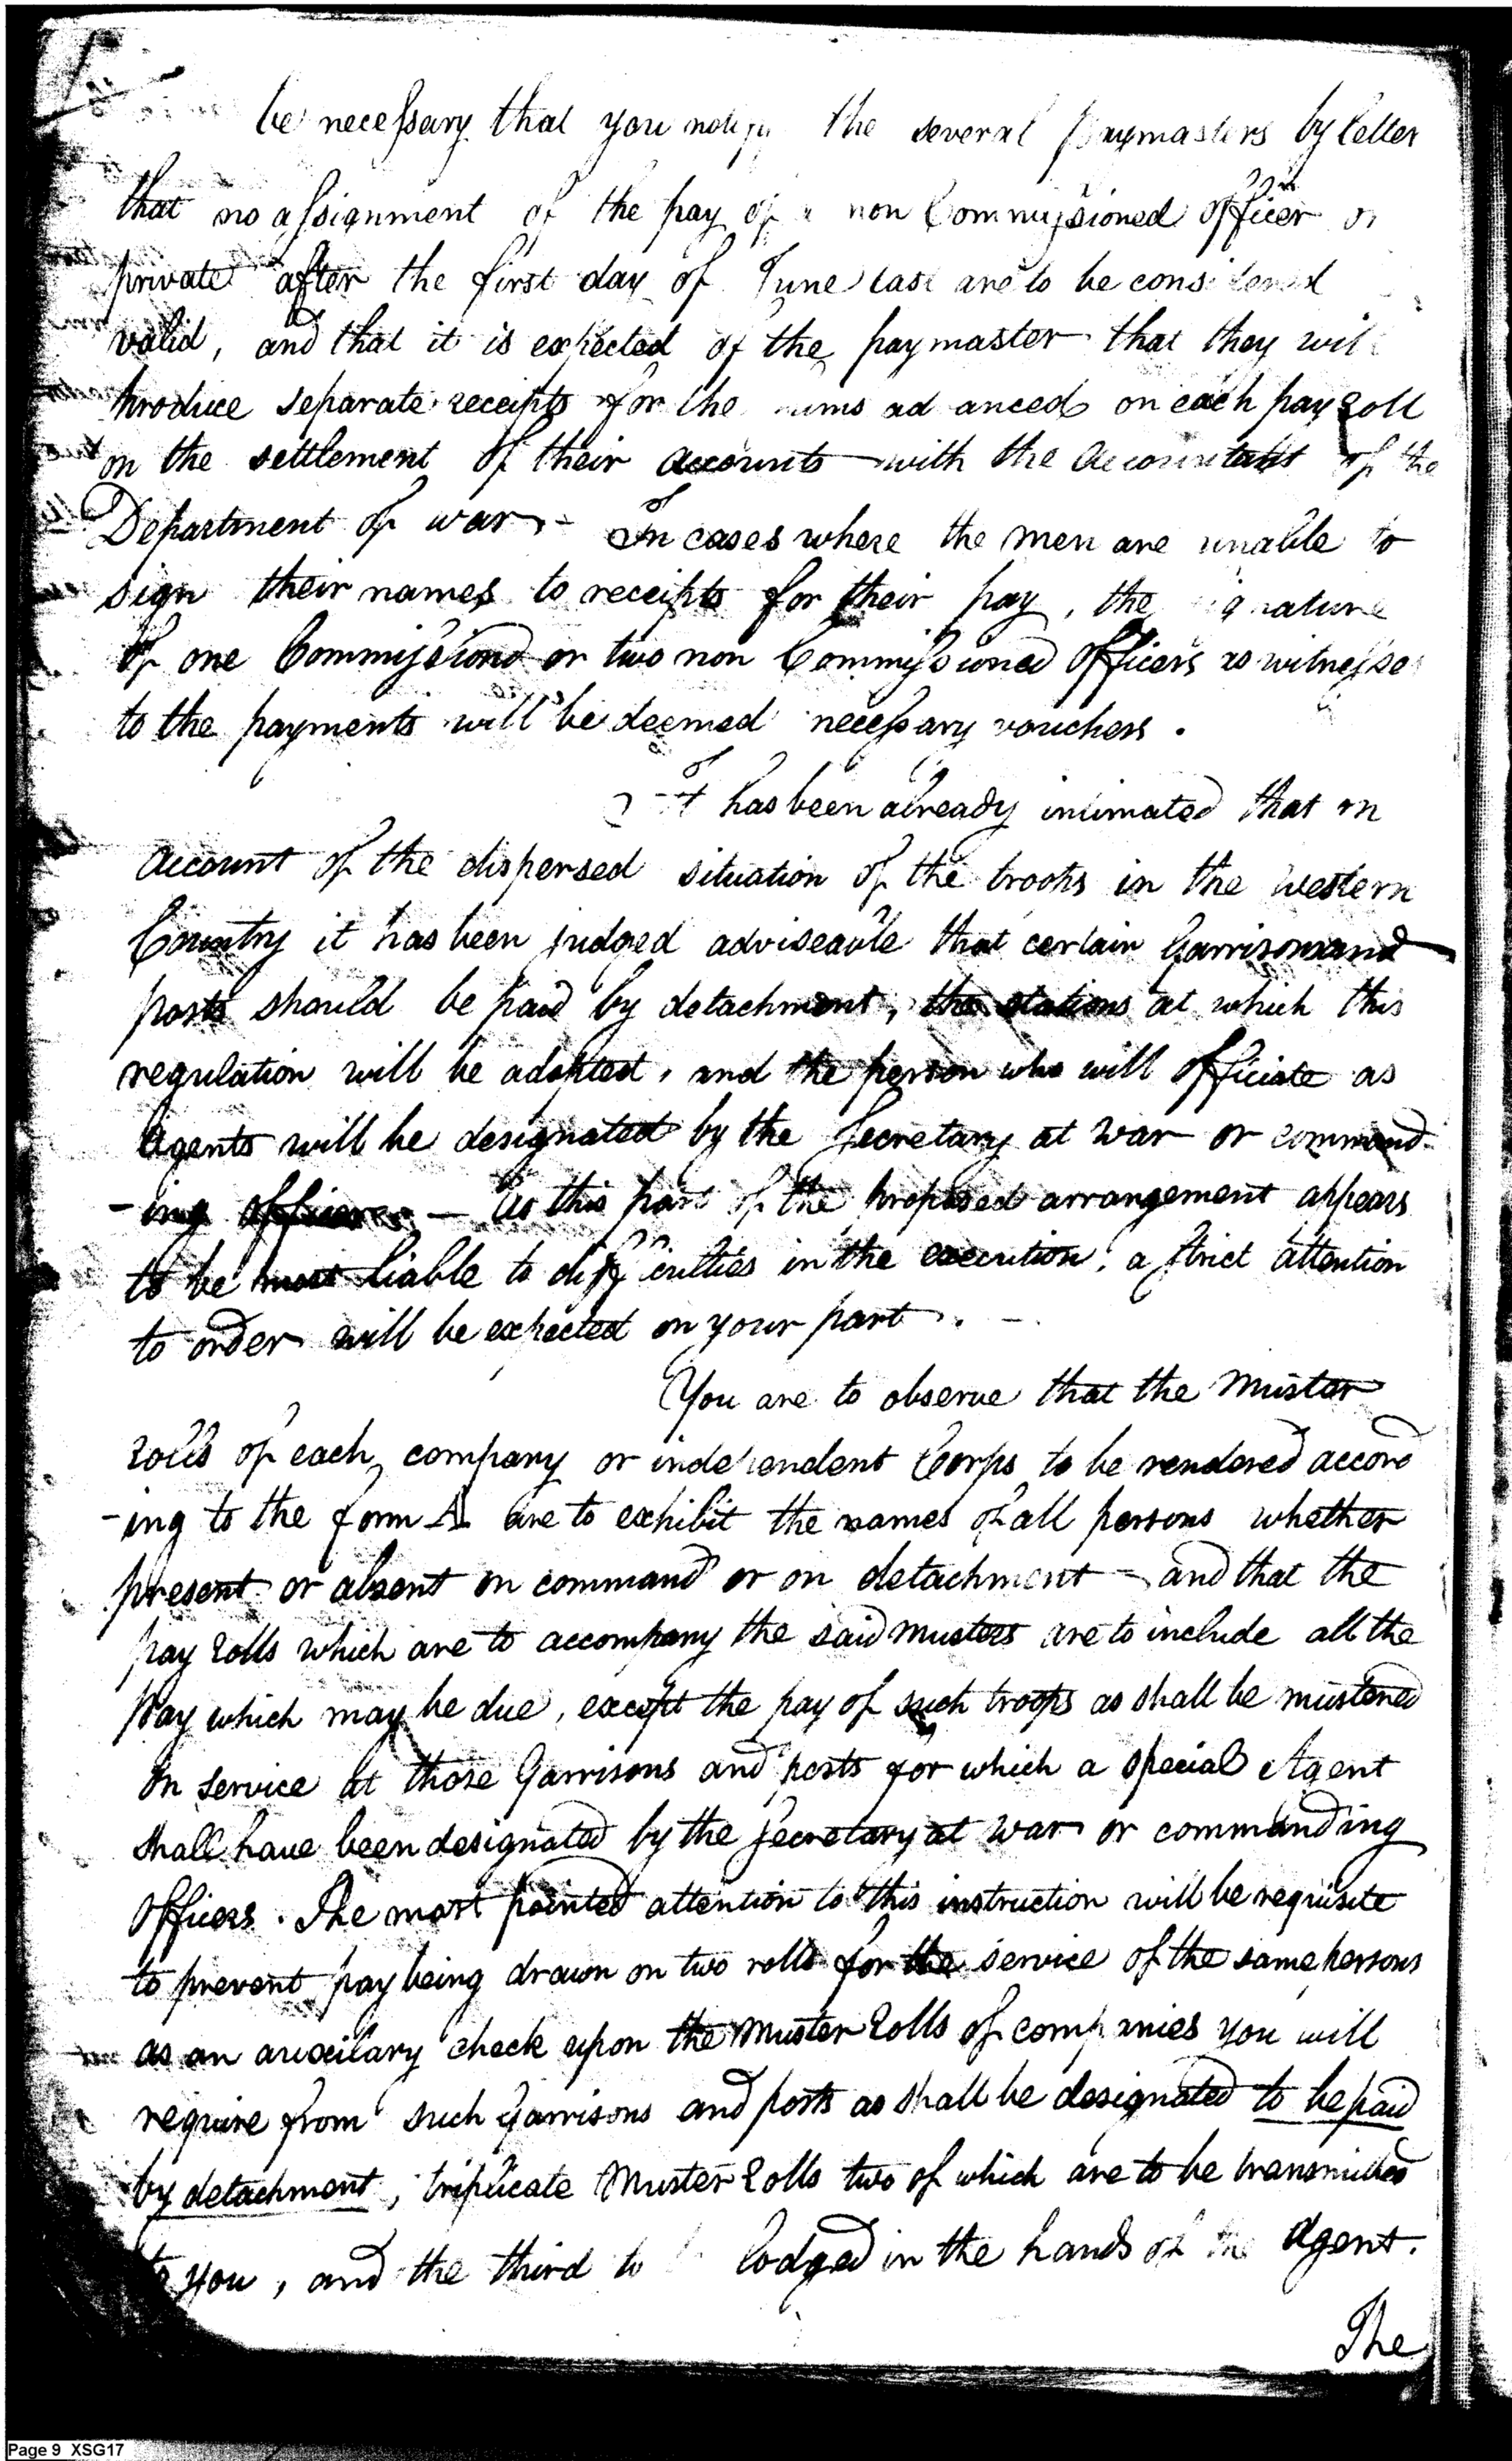 be necessary that you notify the several paymasters by letter
that no assignment of the pay of a non Commissioned officer or
private after the first day of June last are to be considered
valid, and that it is expected of the paymaster that they will
produce separate receipts for the sums advanced on each pay roll
on the settlement of their accounts with the Accountant of the
Department of war. - In cases where the men are unable to
sign their names to receipts for their pay, the signature
of one Commissiond or two non Commissioned officers as witnesses
to the payments will be deemed necessary vouchers.
It has been already intimated that on
account of the dispersed situation of the troops in the western
Country it has been judged adviseable that certain Garrisons and
posts should be paid by detachment, the stations at which this
regulation will be adopted, and the person who will officiate as
Agents will be designated by the Secretary at war or command-
-ing officer - As this part of the proposed arrangement appears
to be most liable to difficulties in the execution, a strict attention
to order will be expected on your part. -
You are to observe that the Muster
rolls of each company or independent Corps to be rendered accord
-ing to the form A are to exhibit the names of all persons whether
present or absent on command or on detachment - and that the
pay rolls which are to accompany the said musters are to include all the
pay which may be due, except the pay of such troops as shall be mustered
in service at those Garrisons and posts for which a special Agent
shall have been designated by the Secretary at war or commanding
officers. The most pointed attention to this instruction will be requisite
to prevent pay being drawn on two rolls for the service of the same persons
as an auxilary check upon the Muster Rolls of companies you will
require from such Garrisons and posts as shall be designated to be paid
by detachment, triplicate Muster Rolls two of which are to be transmitted
to you, and the third to lodged in the hands of the Agent.
The
Page 9 XSG17